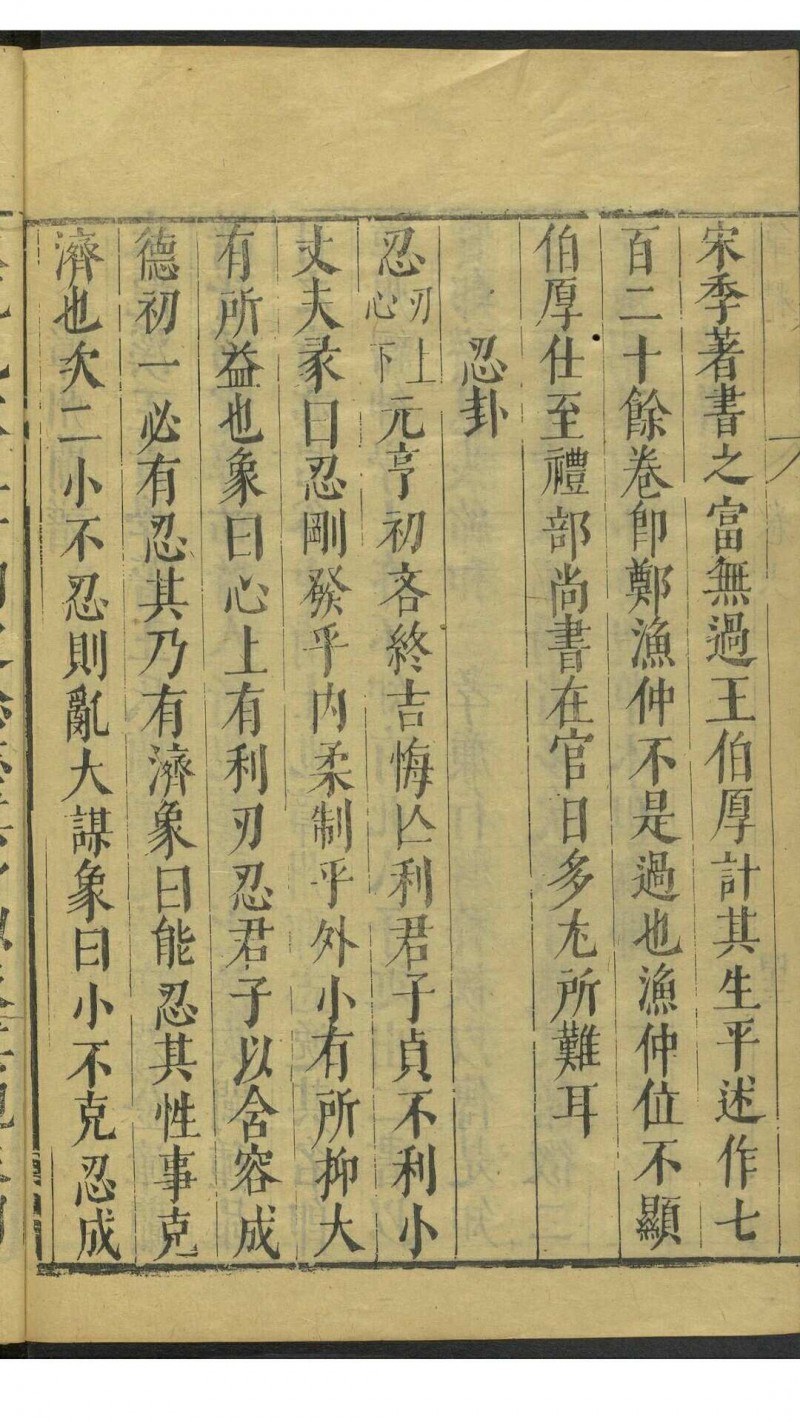 宋季著書之富無過王伯厚計其生平述作七
百二十餘卷卽鄭漁仲不是過也漁仲位不顯
伯厚仕至禮部尚書在官日多尢所難耳
忍卦
忍刃上心下元亨初吝終吉悔亾利君子貞不利小
丈夫彖曰忍剛發乎内柔制乎外小有所抑大
有所益也象曰心上有利刃忍君子以含容成
德初一必有忍其乃有濟象曰能忍其性事克
濟也次二小不忍則亂大謀象曰小不克忍成